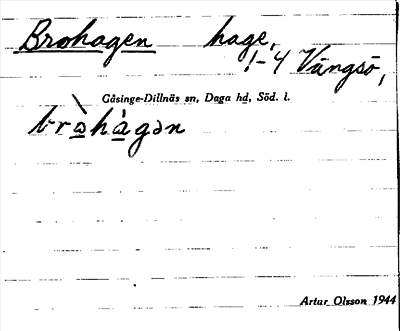 Brohagen hage,
1-4 Vängsö,
Gåsinge-Dillnäs sn, Daga hd, Söd. l.
bròhágən
Artur Olsson 1944